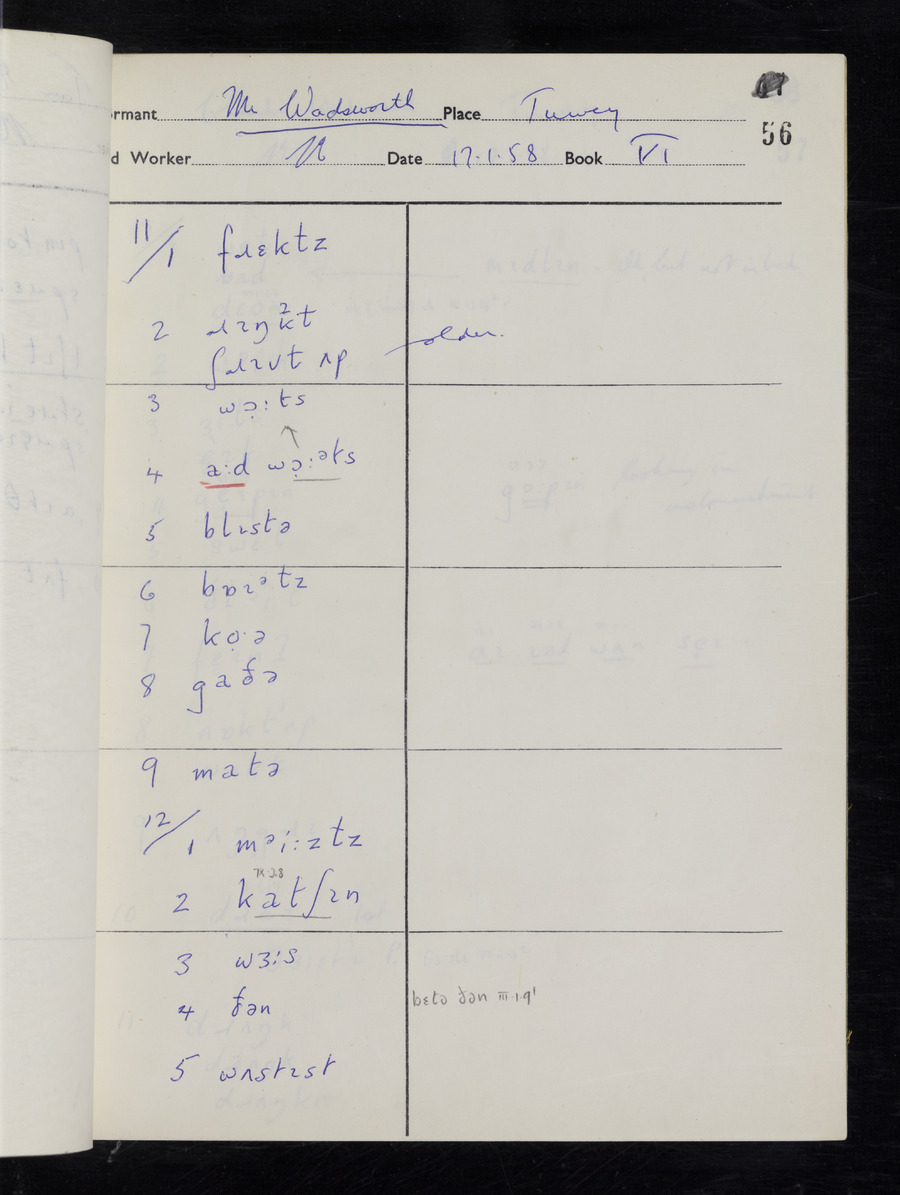 56
ormant Mr Wadsworth Place Turvey
d Worker Date 17.1.58 Book VI
11/1 fɹɛktz
2 ɹɪŋkt
ʃɹɪvt ʌp older.
3 wɔ̣:ts
4 a:d wɔ̣:əts
5 blɪstə
6 bɒɪətz
7 kọ·ə
8 gaðə
9 matə
12/1 məi:ztz
2 katʃɪn
3 wɜ:s
4 ðən bɛtə ðən III.1.9'
5 wʌstɪst